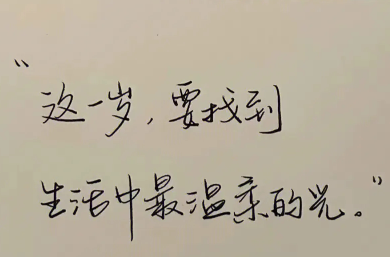 “这一岁，要找到
生活中最温柔的光。”